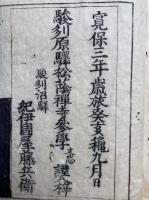 寛保三年歳旅癸亥穐九月日
駿刕原驛松蔭禅寺参學志謹梓
駿刕沼驛
紀伊國屋藤兵衛